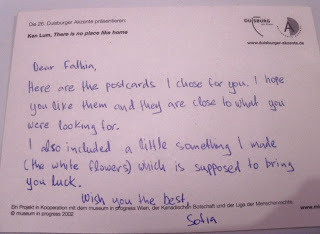 Die 26. Duisburger Akzente präsentieren:
Ken Lum, There is no place like home
DUISBURG
www.duisburger-akzente.de
Dear Fathia,
Here are the postcards I chose for you. I hope
you like them and they are close to what you
were looking for.
I also included a little something I made
(the white flowers) which is supposed to bring
you luck.
Wish you the best,
Sofia
Ein Projekt in Kooperation mit dem museum in progress Wien, der Kanadischen Botschaft und der Liga der Menschenrechte.
© museum in progress 2002